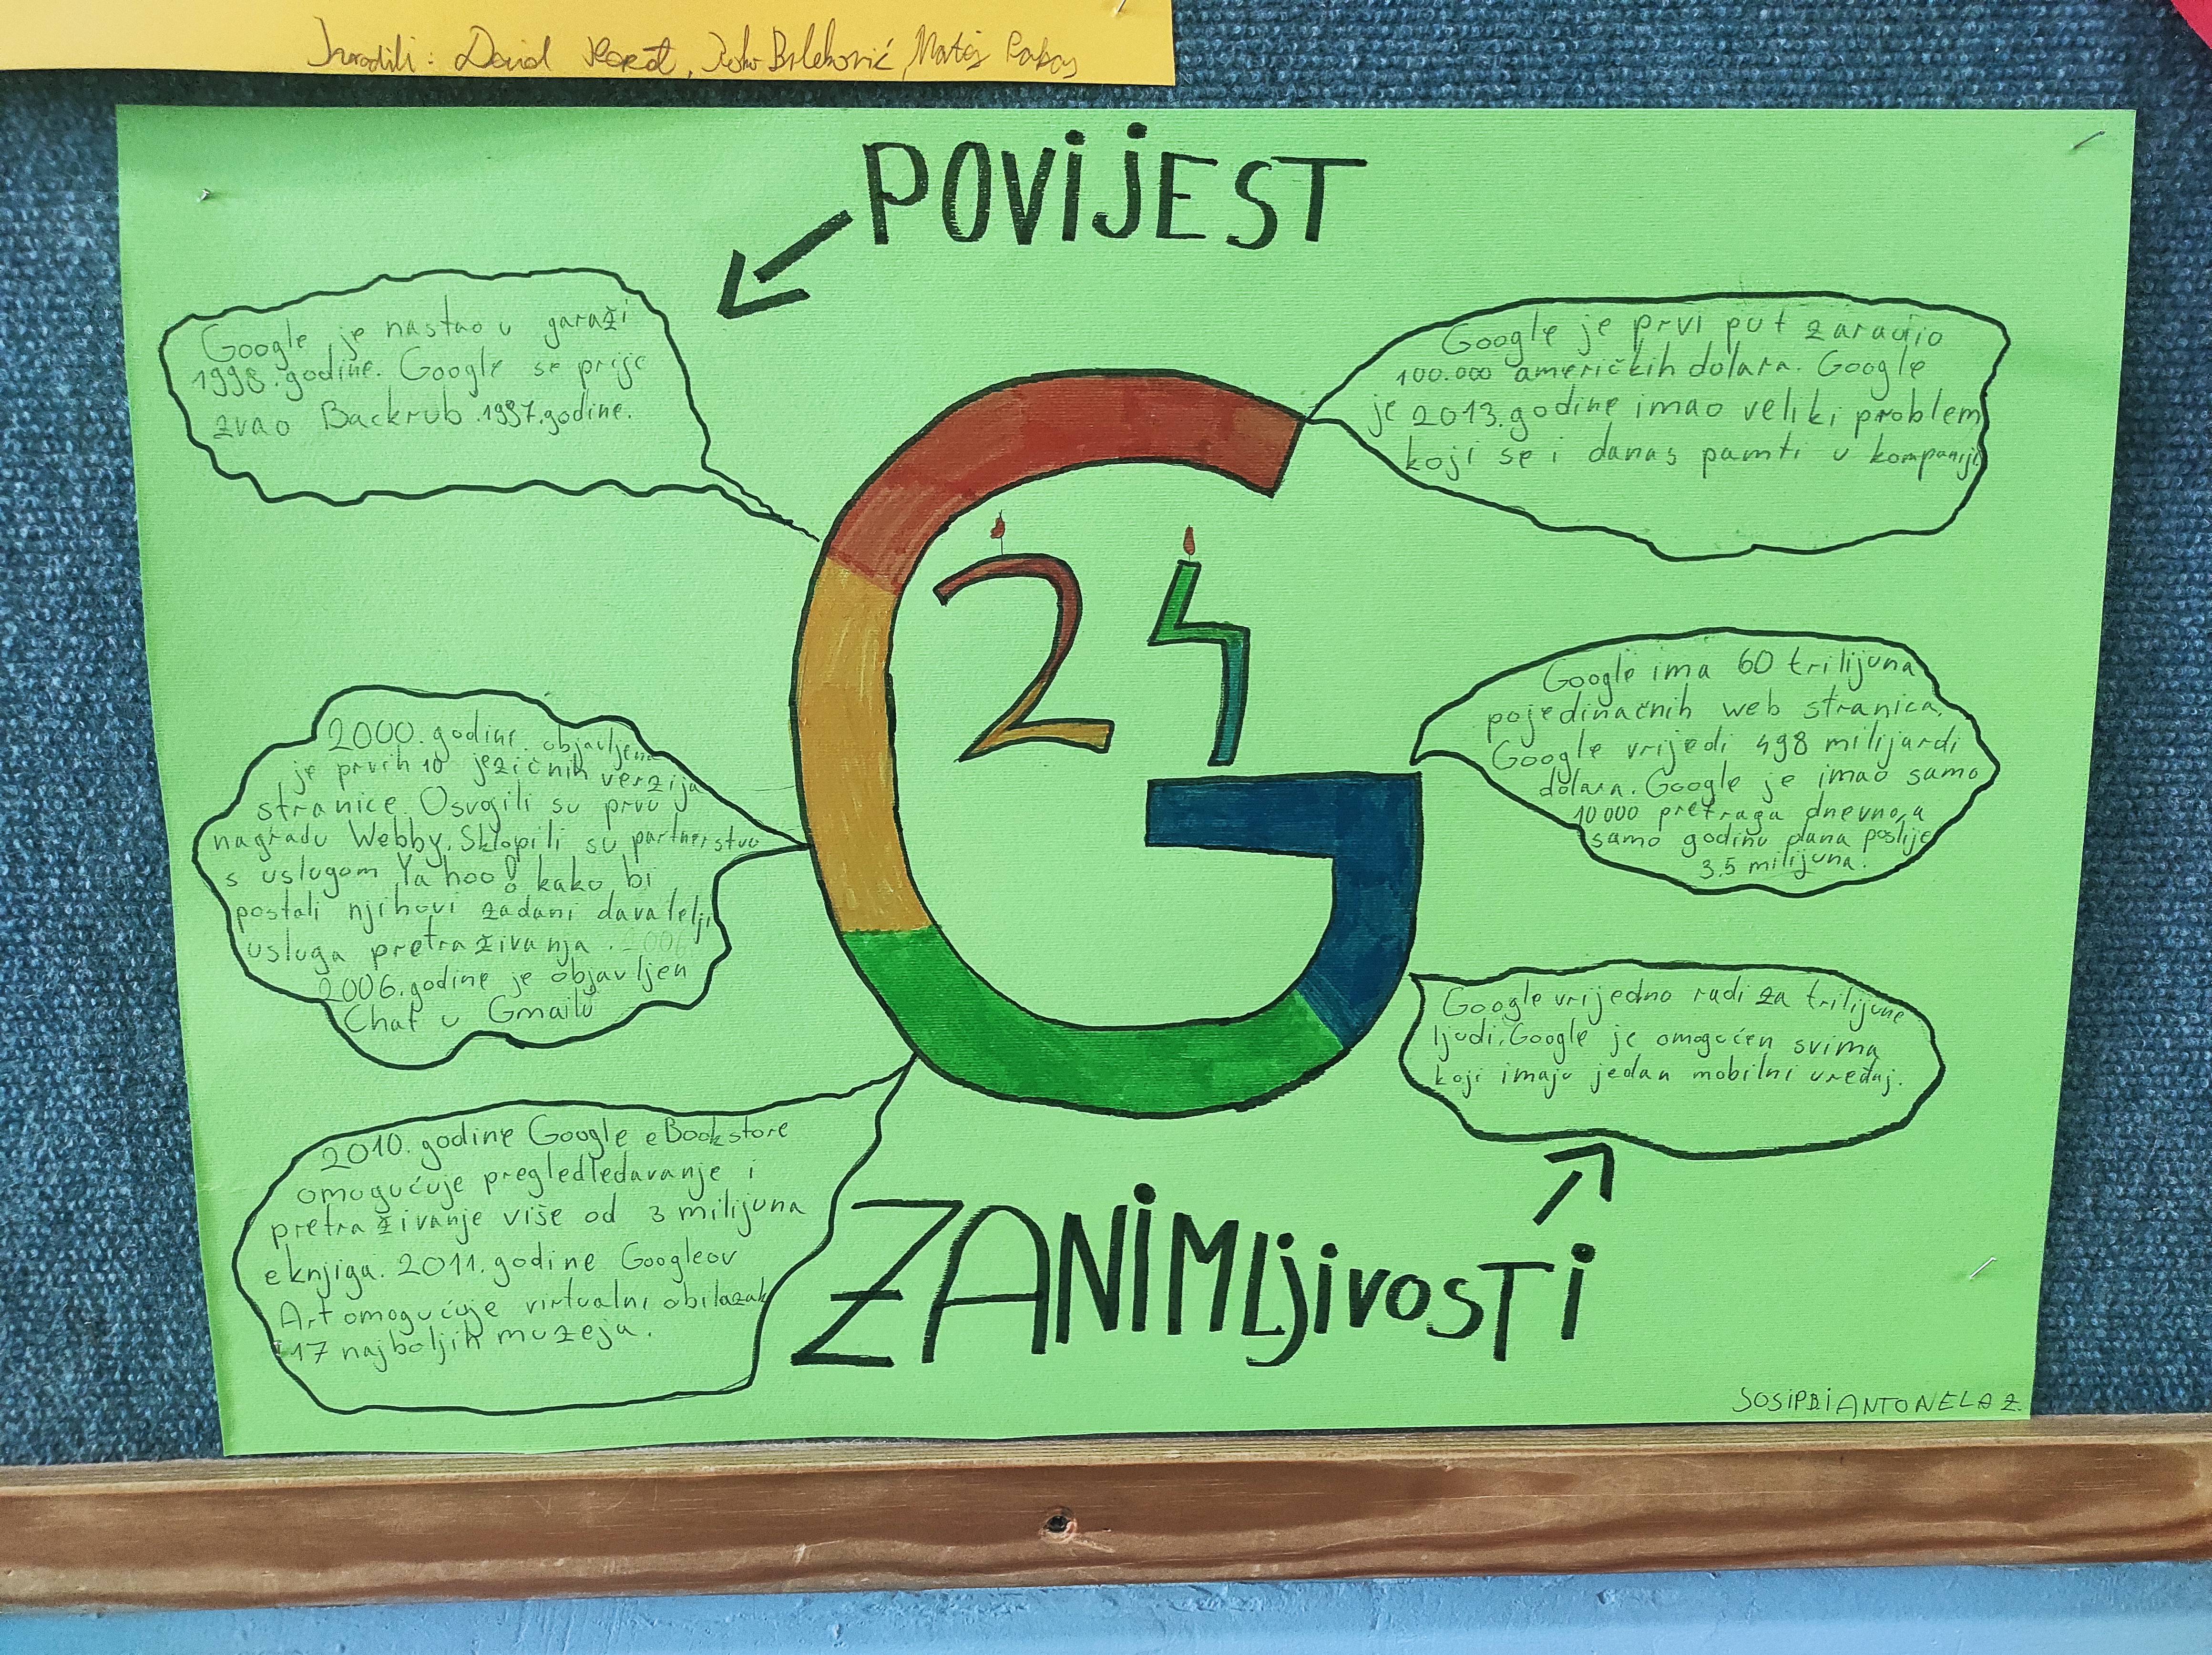 Izradili: David
POVIJEST
Google je nastao u garaži
1998.godine. Google se prije
zvao Backrub .1997.godine.
2000. godine. objavljeno
je prvih 10 jezičnih verzija
stranice. Osvojili su prvu
nagradu Webby. Sklopili su partnerstvo
s uslugom Yahoo! kako bi
postali njihovi zadani davatelji
usluga pretraživanja. 2006
2006.godine je objavljen
Chat u Gmailu
2010. godine Google eBookstore
omogućuje pregledledavanje i
pretraživanje više od 3 milijuna
eknjiga. 2011. godine Googleov
Art omogućuje virtualni obilazak
17 najboljih muzeja.
24
G
Google je prvi put zaradio
100.000 američkih dolara. Google
je 2013.godine imao veliki problem
koji se i danas pamti u kompaniji
Google ima 60 trilijuna
pojedinačnih web stranica.
Google vrijedi 498 milijardi
dolara. Google je imao samo
10 000 pretraga dnevno, a
samo godinu dana poslije
3.5 milijuna.
Google vrijedno radi za trilijune
ljudi. Google je omogućen svima
koji imaju jedan mobilni uređaj.
ZANIMLJIVOSTI
ANTONELA Z.